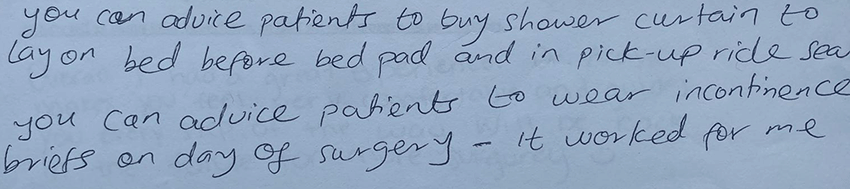 you can advice patients to buy shower curtain to
lay on bed before bed pad and in pick-up ride sea
you can advice patients to wear incontinence
briefs on day of surgery - it worked for me